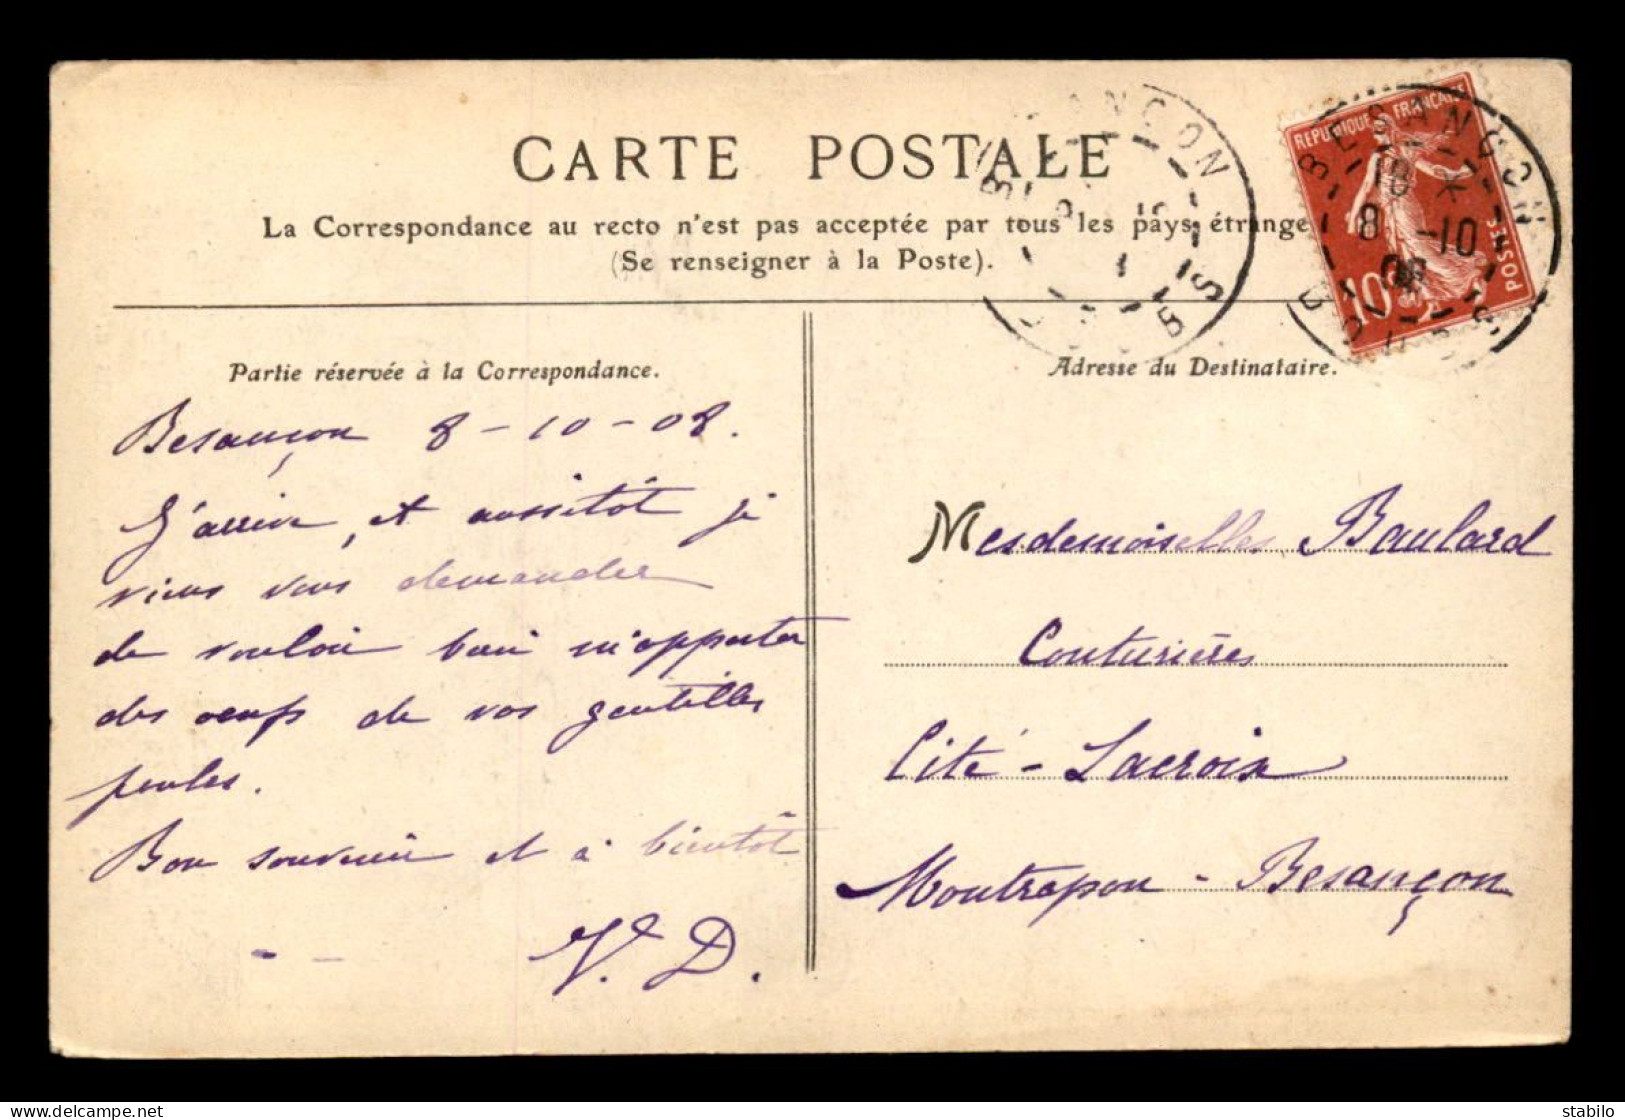 CARTE POSTALE
La Correspondance au recto n'est pas acceptée par tous les pays étrange
(Se renseigner à la Poste).
BESANÇON
DOUBS
REPUBLIQUE FRANÇAISE
POSTES
10c
BESANÇON
18
8 -10
08
DOUBS
Partie réservée à la Correspondance.
Besançon 8 - 10 - 08.
J'arrive, et aussitôt je
viens vous demander
de vouloir bien m'apporter
des oeufs de vos gentilles
poules.
Bon souvenir et à bientôt
V. D.
Adresse du Destinataire.
Mesdemoiselles Baulard
Couturières
Cité - Lacroix
Montrapon - Besançon
stabilo